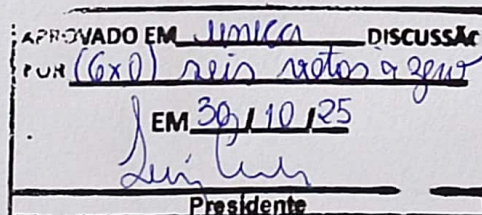 APROVADO EM única DISCUSSÃO
POR (6x0) seis votos a zero
EM 30/10/25
Presidente